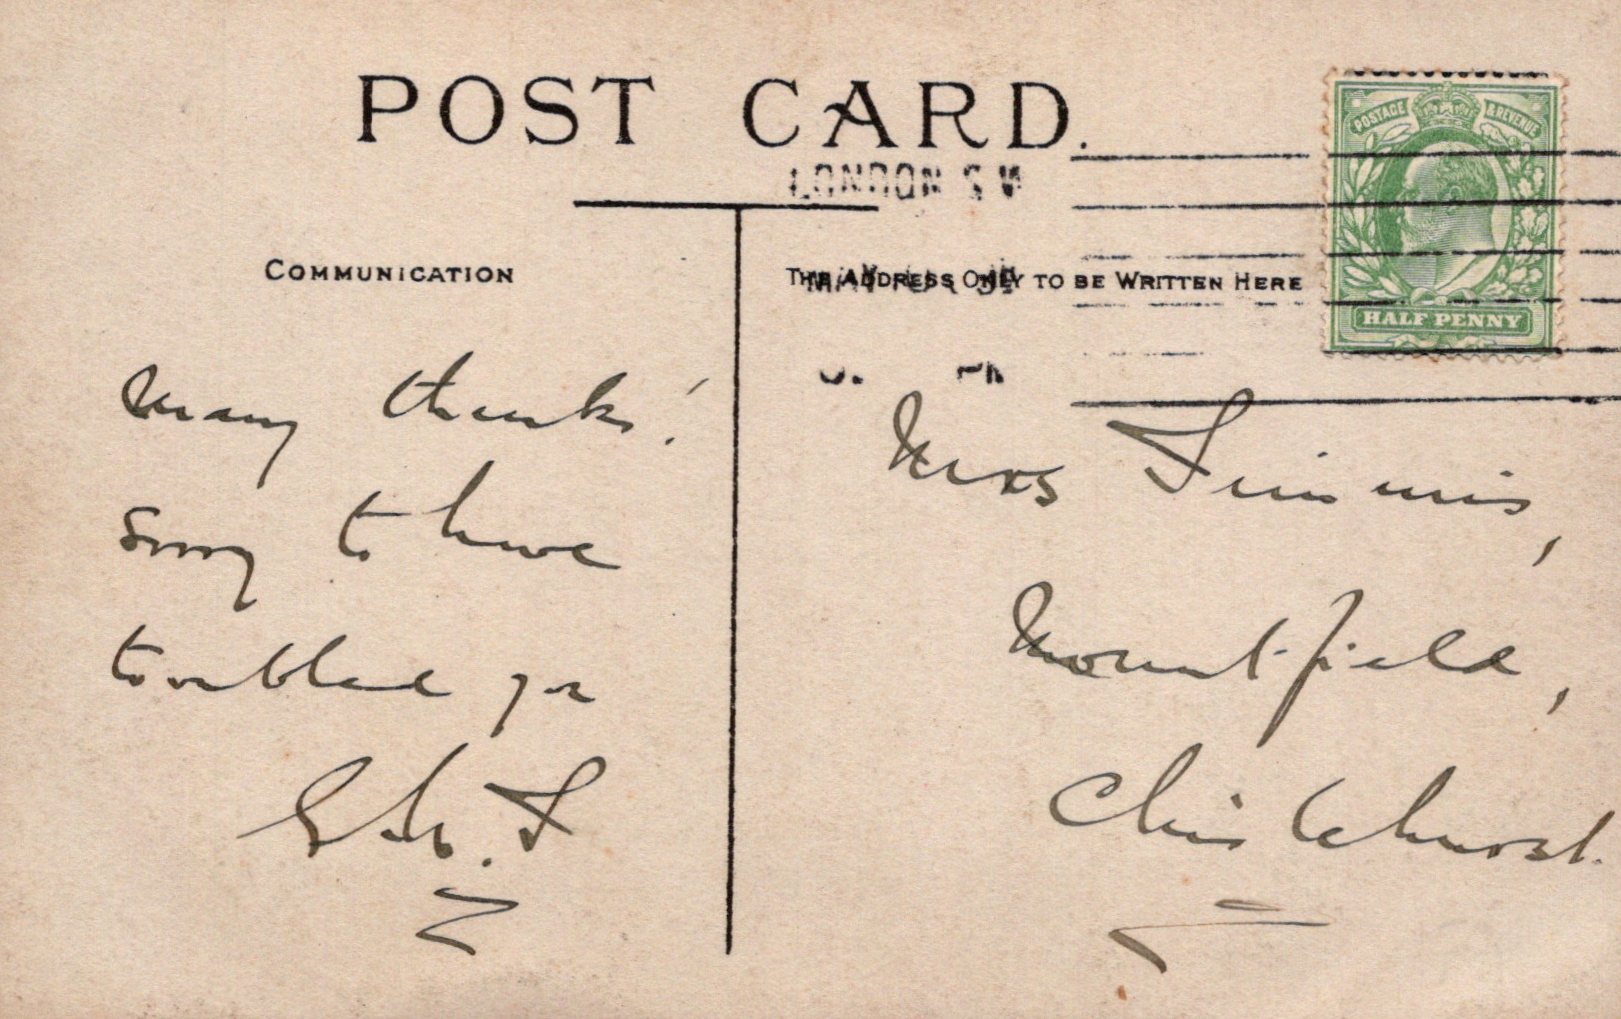 POST CARD.
LONDON S.W
COMMUNICATION
THE ADDRESS ONLY TO BE WRITTEN HERE
POSTAGE & REVENUE
HALF PENNY
Many thanks!
Sorry to have
troubled you
Mrs Simmis,
Mountfield,
Chislehurst.